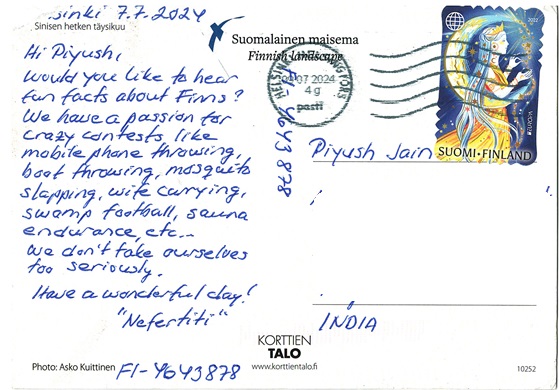 sinki 7.7.2024
Sinisen hetken täysikuu
Hi Piyush,
Would you like to hear
fun facts about Finns?
We have a passion for
crazy contests like
mobile phone throwing,
boot throwing, mosquito
slapping, wife carrying,
swamp football, sauna
endurance, etc...
We don't take ourselves
too seriously.
Have a wonderful day!
"Nefertiti"
Photo: Asko Kuittinen
FI-4643878
Suomalainen maisema
Finnish landscape
07 2024
4 g
pasti
4643878
2022
SUOMI·FINLAND
Piyush Jain
INDIA
KORTTIEN
TALO
www.korttientalo.fi
10252